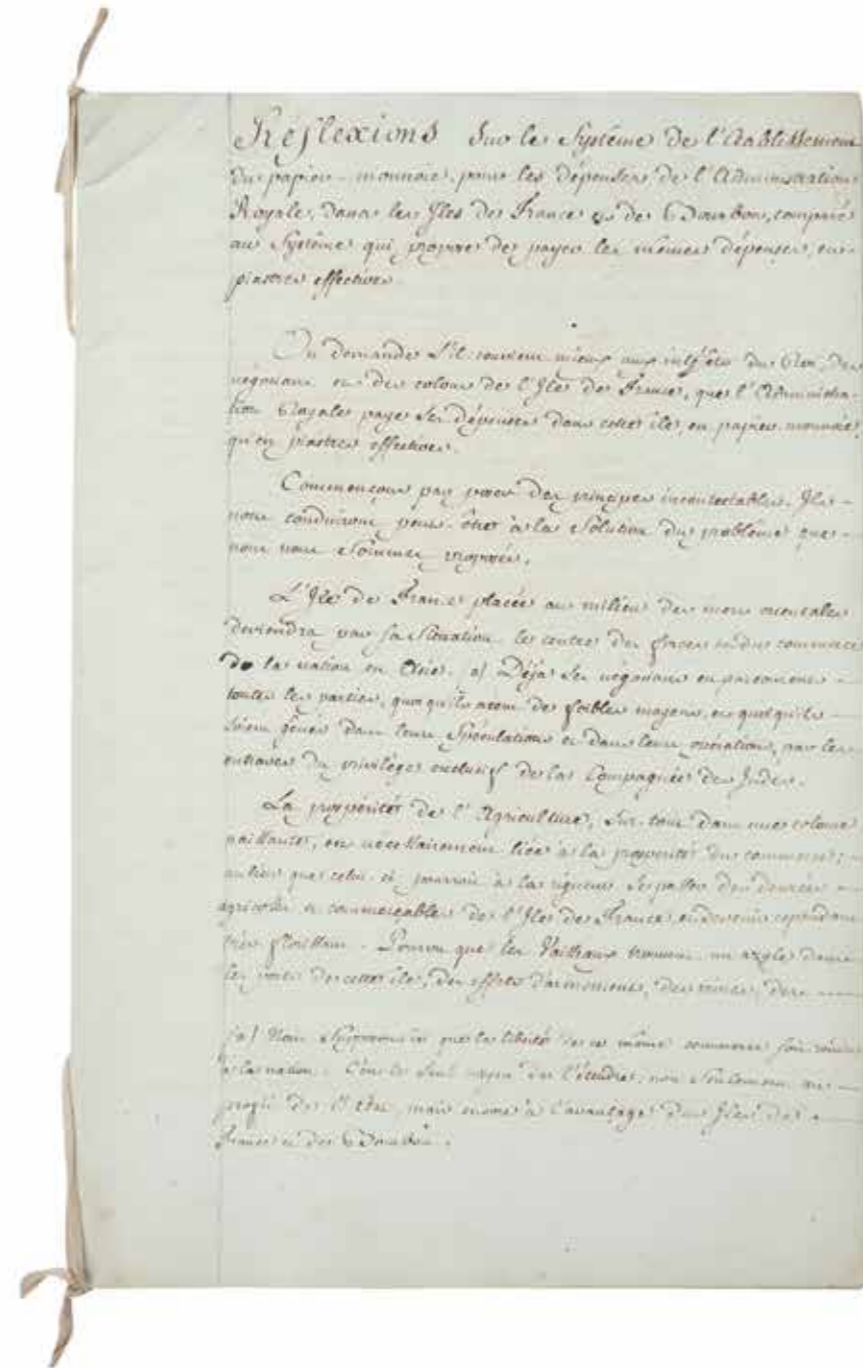 Réflexions Sur le Systême de l'établissement
du papier-monnaie, pour les dépenses de l'Administration
Royale, dans les Iles de France et de Bourbon, comparé
au Systême qui propose de payer les mêmes dépenses, en
piastres effectives.
On demande s'il convient mieux aux intérêts du Roi, des
négocians et des colons de l'Ile de France, que l'Administra-
tion Royale paye ses dépenses dans cette île, en papier monnaie,
qu'en piastres effectives.
Commençons par poser des principes incontestables. Ils
nous conduiront peut-être à la Solution du problême que
nous nous Sommes proposés.
L'Ile de France placée au milieu des mers orientales
deviendra par sa Situation le centre des forces et du commerce
de la nation en Asie. a) Déja Ses négocians en parcourent
toutes les parties, quoiqu'ils aient de foibles moyens, et quoiqu'ils
soient gênés dans leurs Spéculations et dans leurs opérations, par les
entraves du privilége exclusif de la Compagnie des Indes.
La prospérité de l'Agriculture, Sur-tout dans une colonie
naissante, est nécessairement liée à la prospérité du commerce;
au lieu que celui-ci pourroit à la rigueur Se passer des denrées
agricoles et commerçables de l'Ile de France, et devenir cependant
très florissant. Pourvu que les Vaisseaux trouvent un azyle dans
les ports de cette île, des effets d'armemens, des vivres, des
(a) Nous Supposons ici que la liberté de ce même commerce soit rendue
à la nation. C'est le Seul moyen de l'étendre, non Seulement au
profit de l'Etat, mais encore à l'avantage des Iles de
France et de Bourbon.